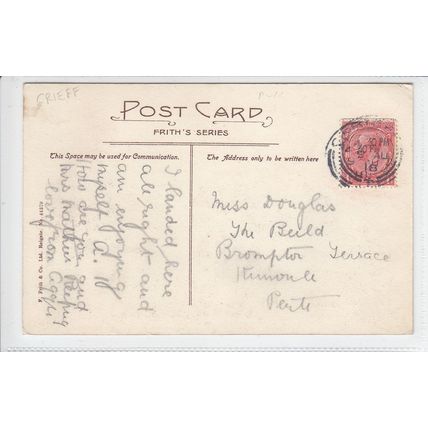 CRIEFF
POST CARD
FRITH'S SERIES
This Space may be used for Communication.
The Address only to be written here
I landed here
all right and
am enjoying
myself A.1.
How are you and
Mrs
love from
F. Frith & Co. Ltd. Reigate
Miss Douglas
The
Brompton Terrace
Kinnoull
Perth
18